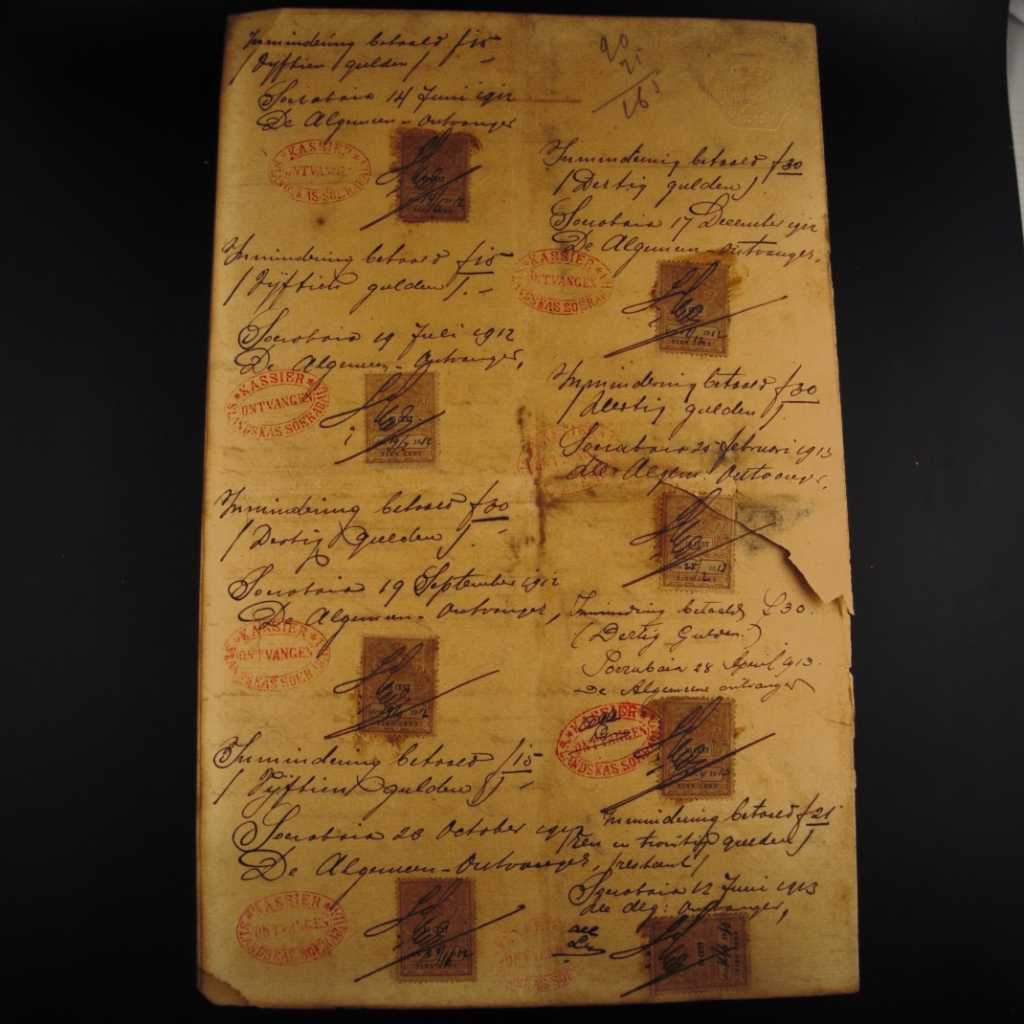 Inmindering betaald f 15
/ Vijftien gulden / . -
Soerabaia 14 Juni 1912
De Algemeen-Ontvanger
KASSIER
ONTVANGEN
'S LANDSKAS SOERABAIA
Inmindering betaald f 15
/ Vijftien gulden / . -
Soerabaia 19 Juli 1912
De Algemeen-Ontvanger,
KASSIER
ONTVANGEN
'S LANDSKAS SOERABAIA
19/7 1912
Inmindering betaald f 30
/ Dertig gulden / . -
Soerabaia 19 September 1912
De Algemeen-Ontvanger,
KASSIER
ONTVANGEN
'S LANDSKAS SOERABAIA
Inmindering betaald f 15
/ Vijftien gulden / -
Soerabaia 28 October 1912
De Algemeen-Ontvanger,
KASSIER
ONTVANGEN
'S LANDSKAS SOERABAIA
90
21
165
Inmindering betaald f 30
/ Dertig gulden /
Soerabaia 17 December 1912
De Algemeen-Ontvanger.
KASSIER
ONTVANGEN
'S LANDSKAS SOERABAIA
Inmindering betaald f 30
/ Dertig gulden / .
Soerabaia 25 februari 1913
Algem: Ontvanger,
Inmindering betaald f 30.
(Dertig Gulden.)
Soerabaia 28 April 1913.
De Algemeene ontvanger
KASSIER
ONTVANGEN
'S LANDSKAS SOERABAIA
Inmindering betaald f 21
/ een en twintig gulden /
/ restant /
Soerabaia 12 Juni 1913
dlg: Ontvanger,